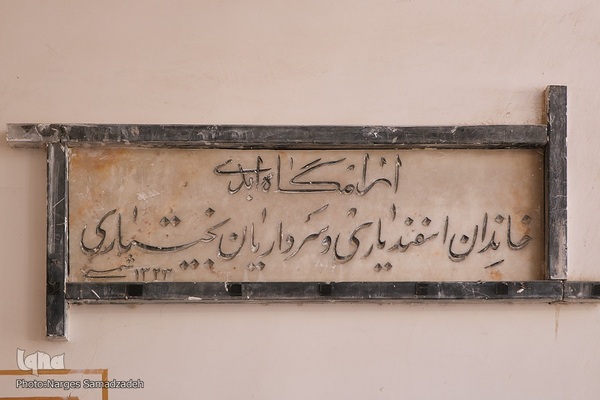 آرامگاه ابدی
خاندان اسفندیاری و سرداریان بختیاری
۱۳۲۳
iqna
Photo:Narges Samadzadeh